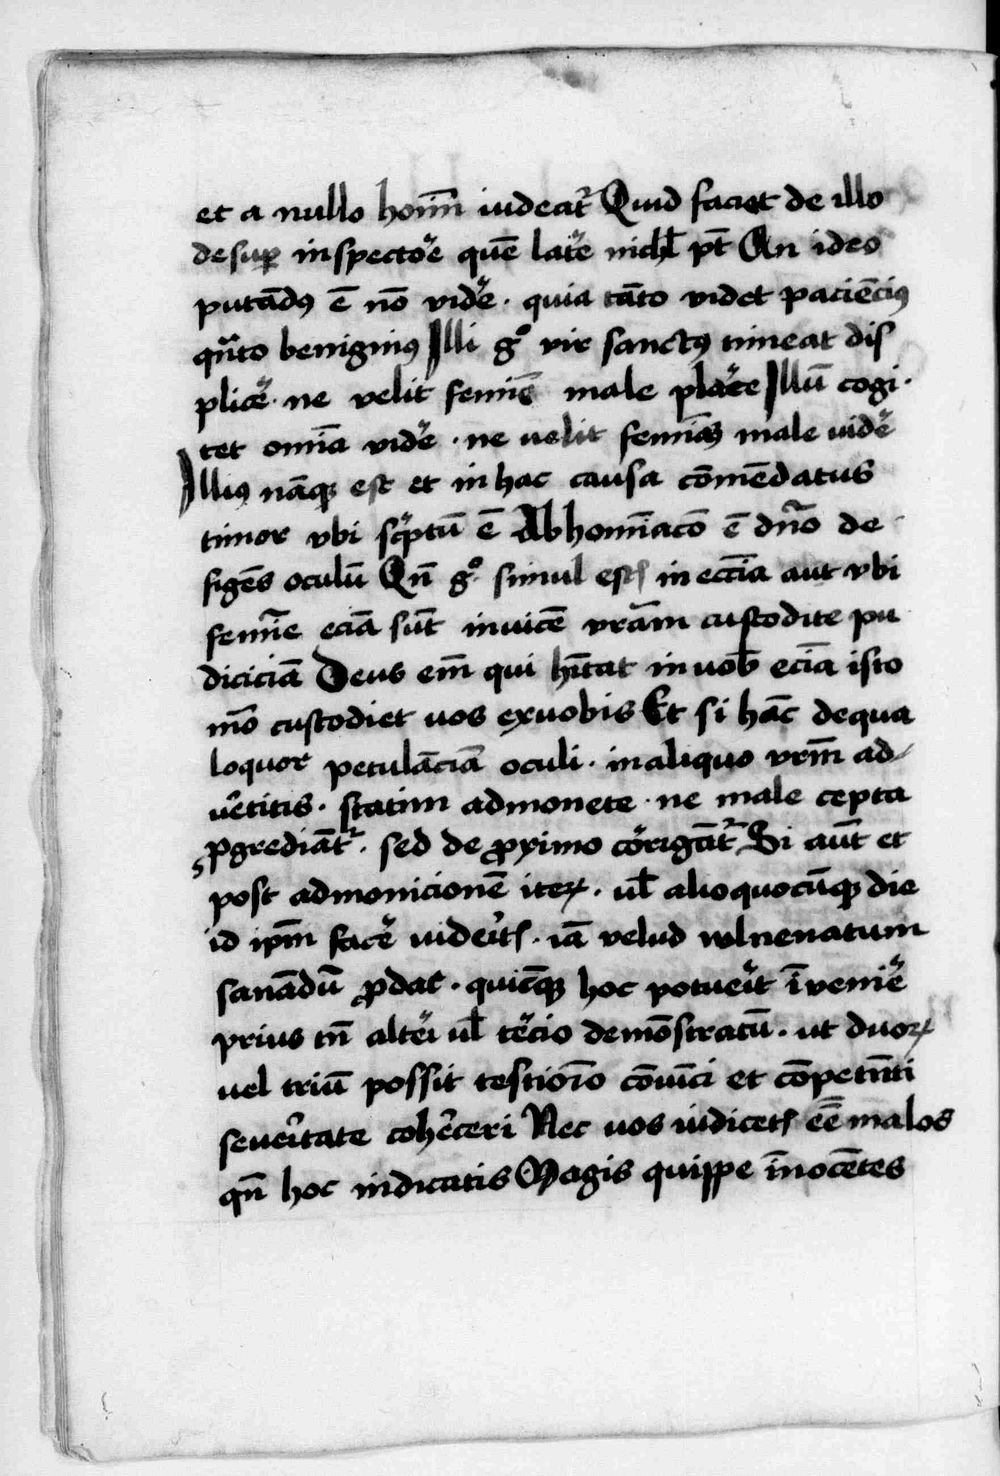 et a nullo homī iudeat᷑ Quid faciet de illo
desuꝑ inspectoꝛ̄e quē lat̄e nichł pt̄ An ideo
putādꝰ ē nō vid̄e · quia tāto videt paciēciꝰ
qn̄to benigniꝰ Illi gͦ vir sanctꝰ timeat dis
plic̄e · ne velit femīe male plac̄e Illū cogi·
tet omīa vid̄e · ne uelit femīaꝫ male uid̄e
Illiꝰ nāqꝫ est et in hac causa cōmēdatus
timor vbi sc̄ptū ē Abhomīacō ē dn̄o de
figēs oculū Qn̄ gͦ simul estꝭ in ecc̄ia aut vbi
femīe eciā sūt inuicē vr̄am custodite pu
diciciā Deus em̄ qui hītat in uob̄ eciā isto
mō custodiet uos ex uobis Et si hāc de qua
loquor petulāciā oculi · in aliquo vrm̄ ad
ūtitis · statim admonete · ne male cepta
ꝓgrediāt᷑ · sed de ꝓximo cōrigāt᷑ Si aūt et
post admonicionē iteꝝ · uł alio quocūqꝫ die
id ipm̄ fac̄e uidēitꝭ · iā velud wlneratum
sanādū ꝓdat · quicūqꝫ hoc potuēit īuenīe
prius tn̄ altēi uł tēcio demōstratū · ut duoꝝ
uel triū possit testioīo cōuīci et cōpetn̄ti
seuēitate cohēceri Nec uos iudicetꝭ eē̄ malos
qn̄ hoc indicatis Magis quippe īnocētes